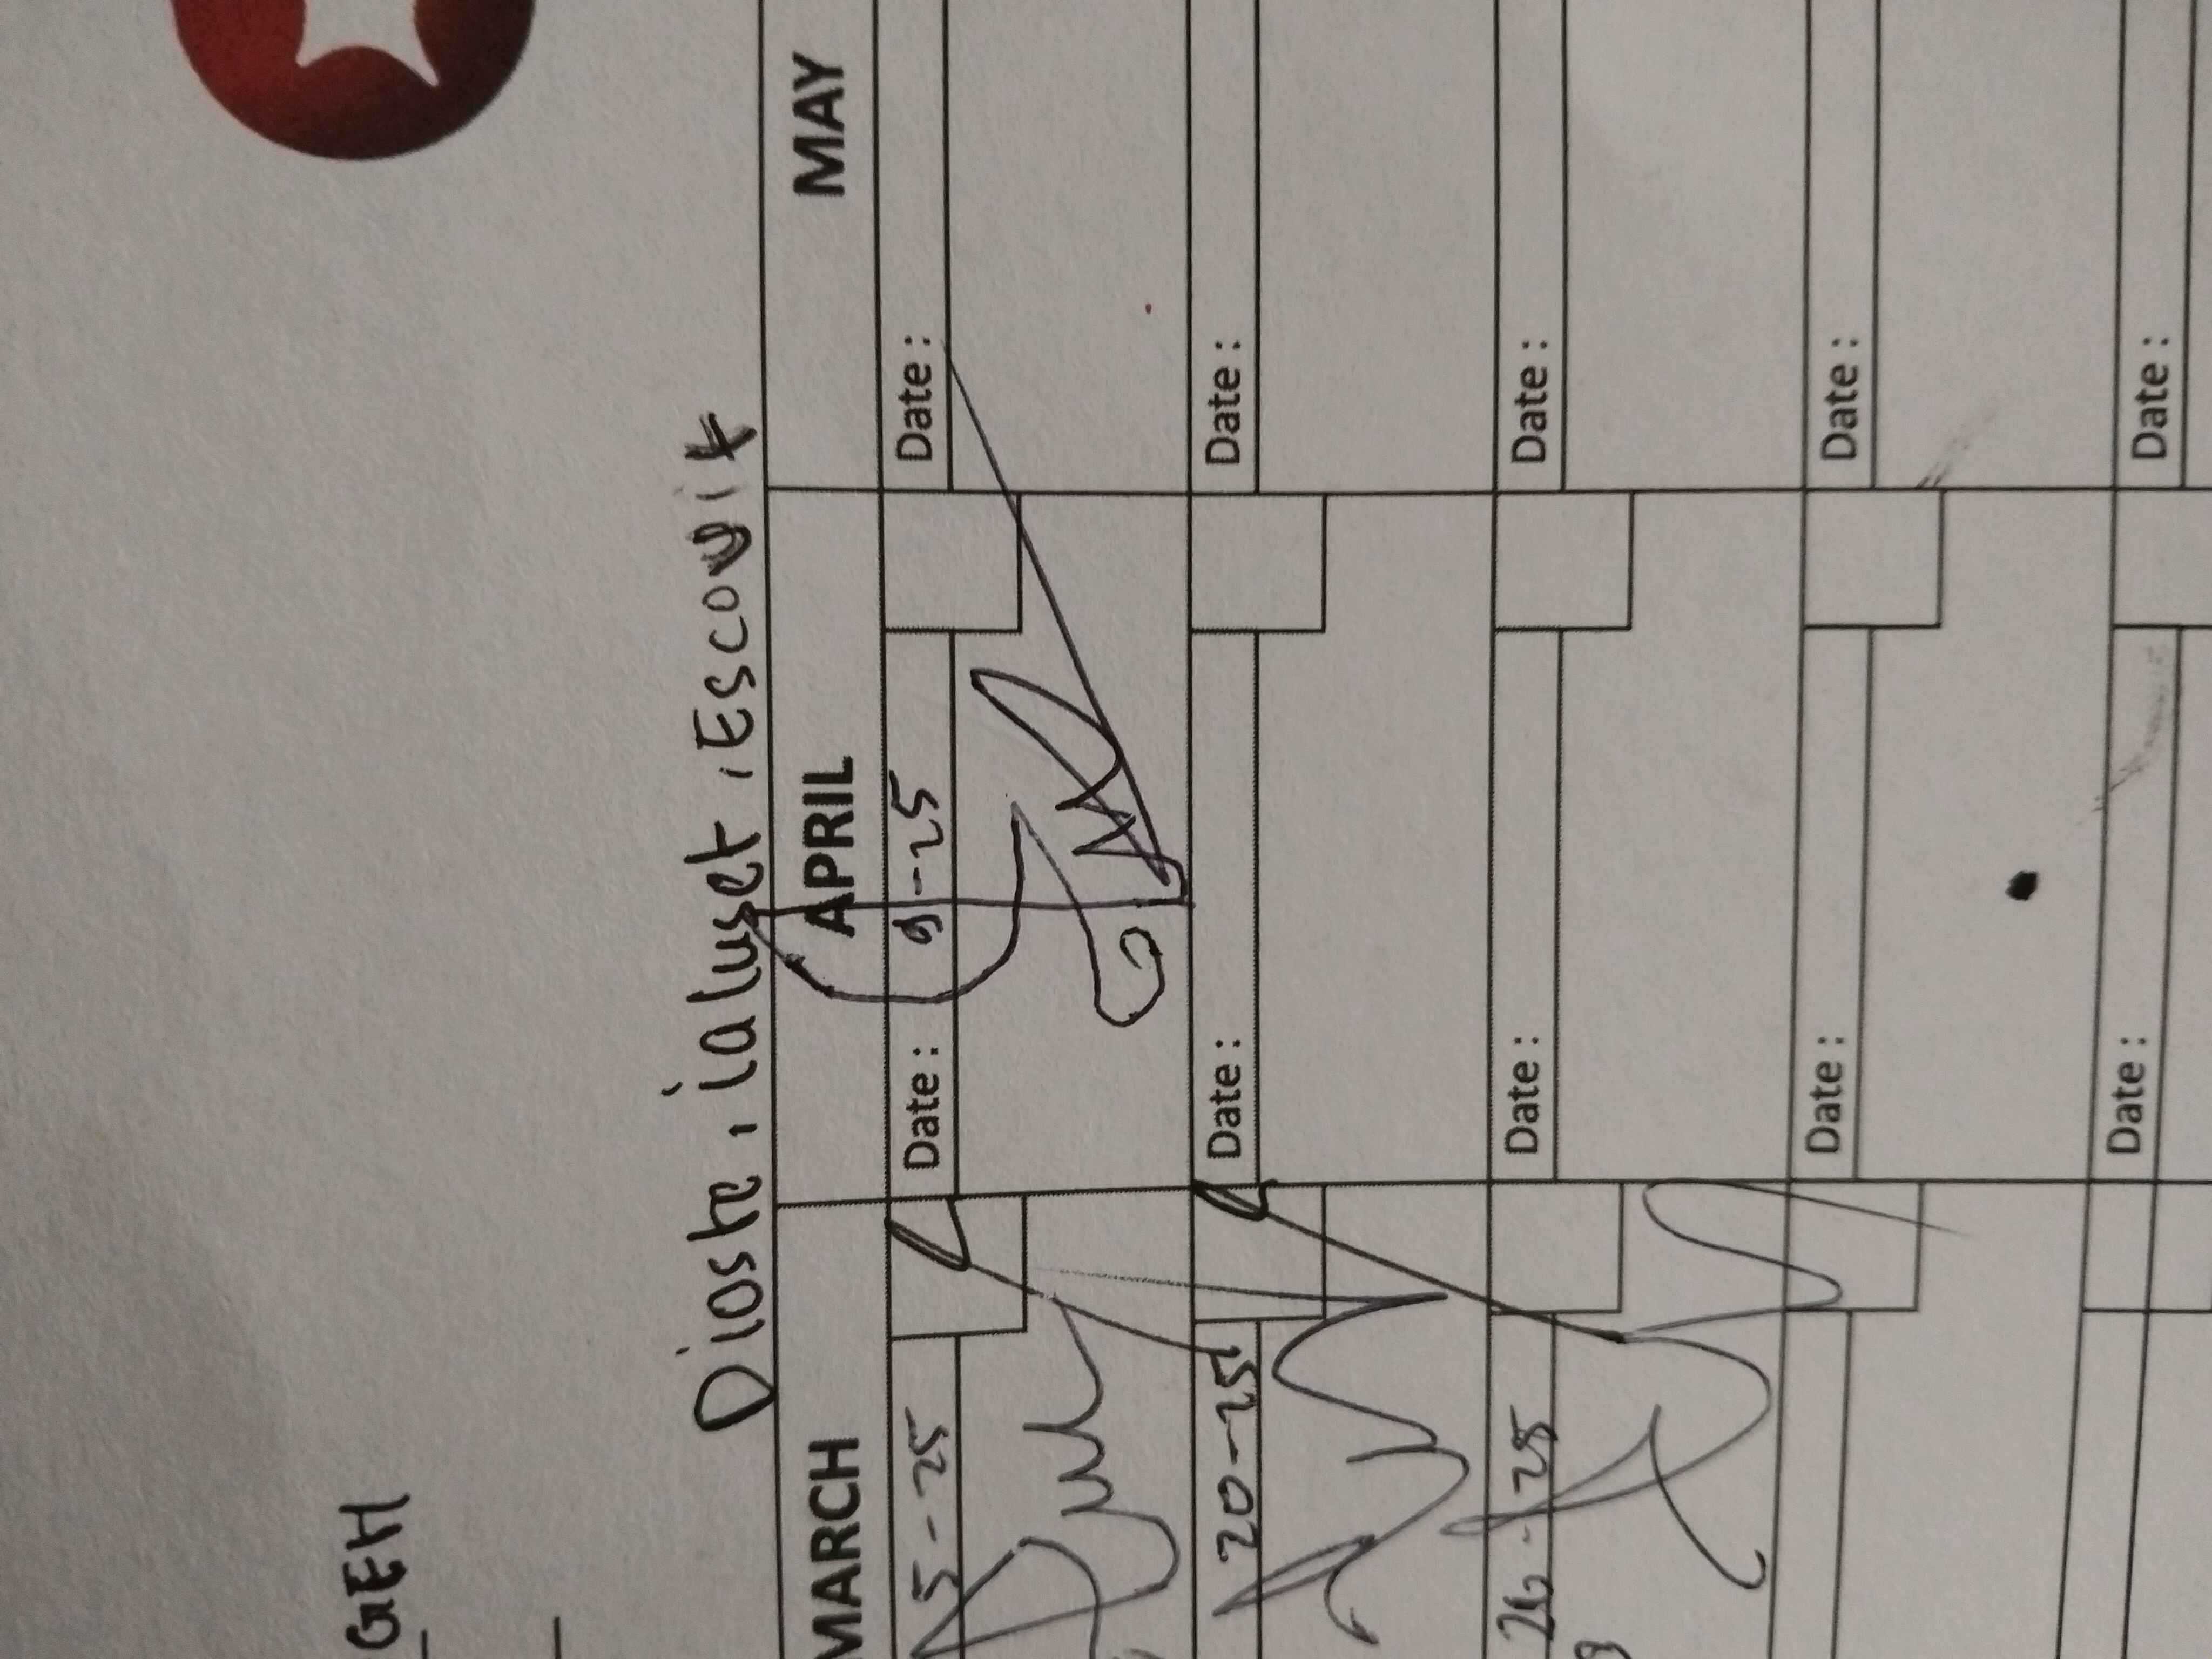 GEH
Dioshe, ialuset, Escovit
MARCH APRIL MAY
5-25 Date : 9-25 Date :
20-25 Date : Date :
26-25 Date : Date :
Date : Date :
Date : Date :